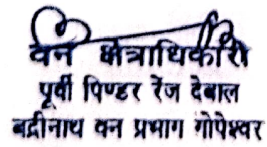 वन क्षेत्राधिकारी
पूर्वी पिण्डर रेंज देबाल
बद्रीनाथ वन प्रभाग गोपेश्वर